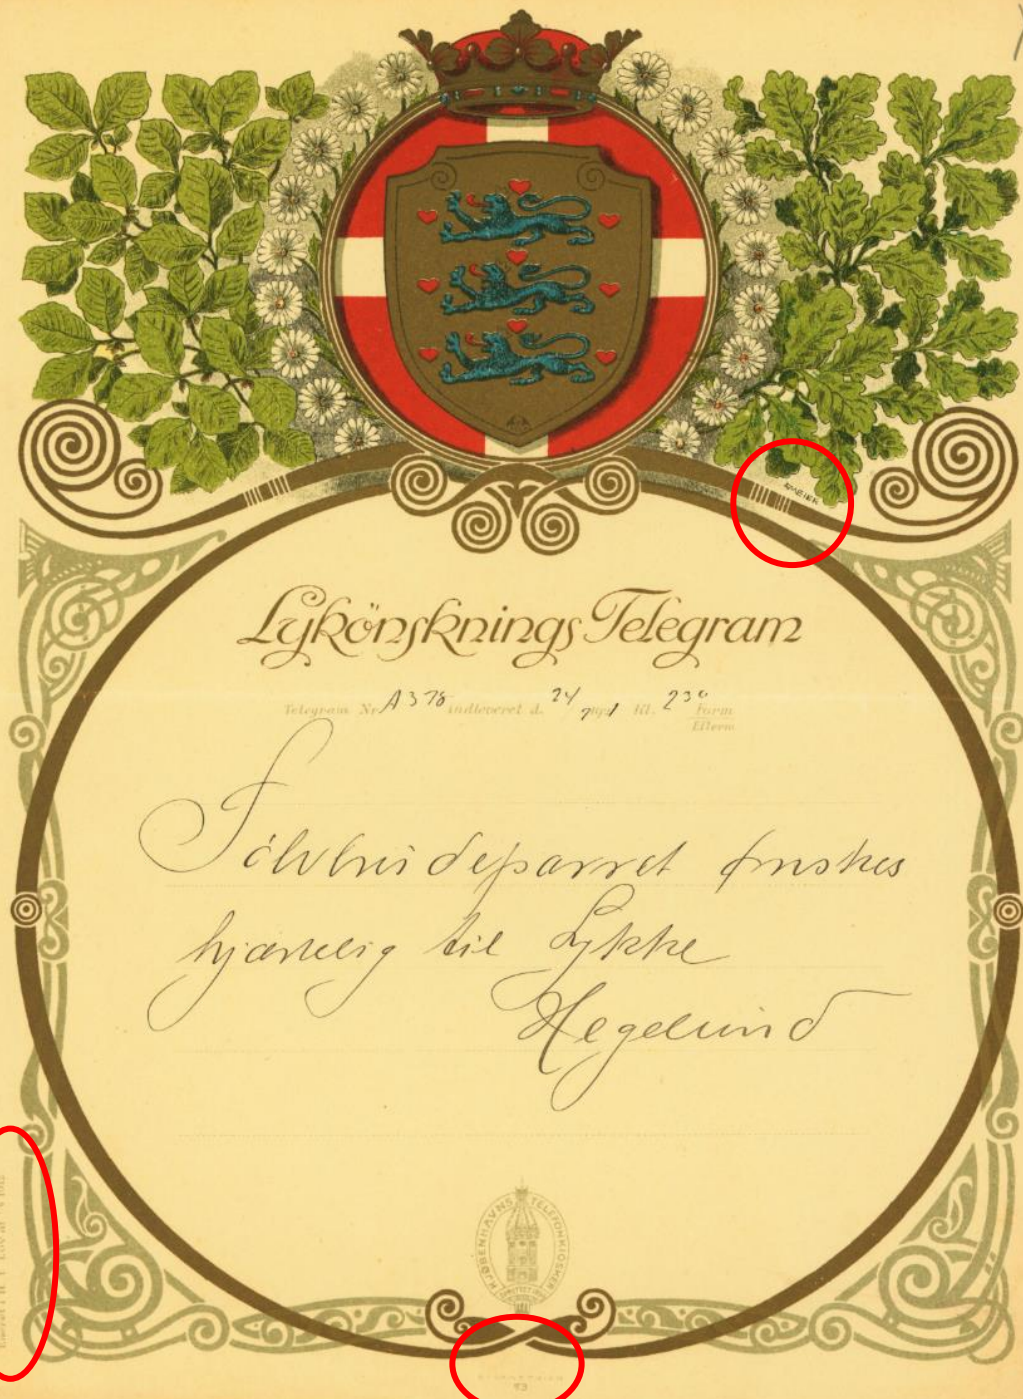 Lykönsknings Telegram
Telegram Nr. A 378 indleveret d. 24/7 1921 Kl. 2³⁰ Form
Efterm
Sölvbrudeparret ønskes
hjærtelig til Lykke
Hegelund
KJØBENHAVNS TELEFONKIOSKER